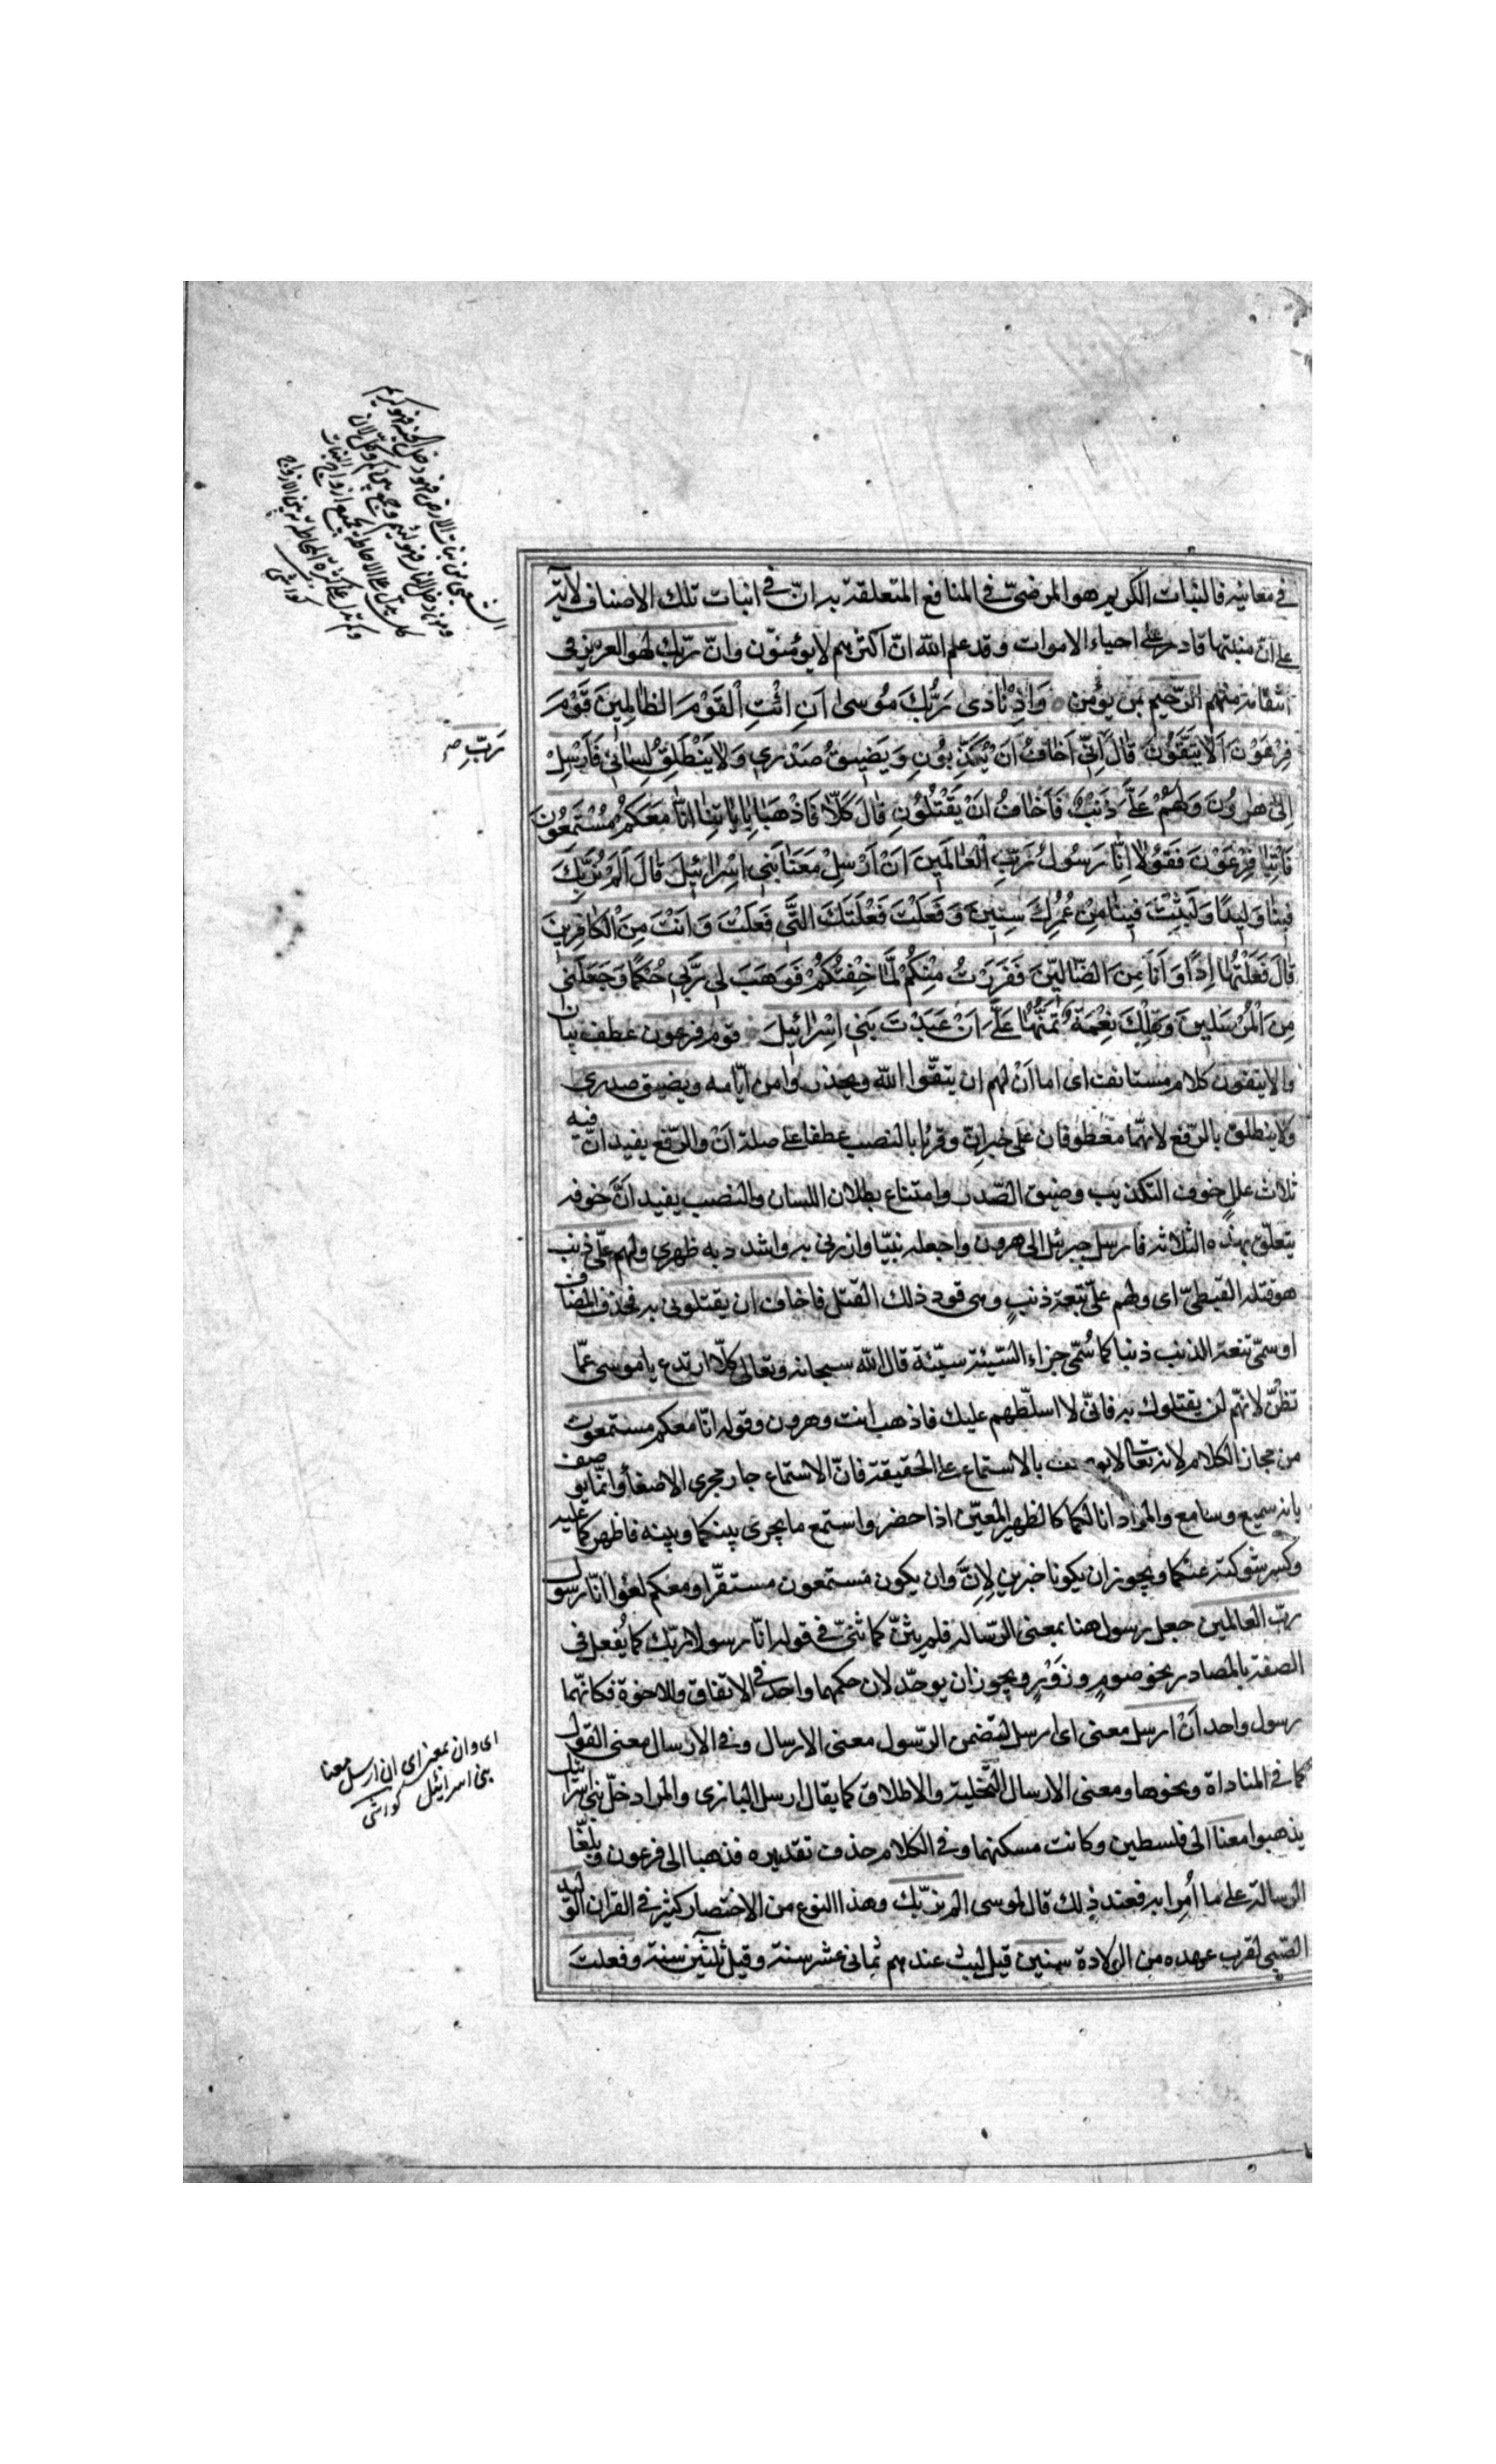 في معانيه فالنبات الكريم هو المرضيّ في المنافع المتعلقة به انّ في انبات تلك الاصناف لآية
على ان منبتها قادر على احياء الاموات وقد علم الله انّ اكثرهم لا يؤمنون وانّ ربّك لهو العزيز في
انتقامه منهم الرّحيم بمن يؤمن وَاِذْ نٰادىٰ رَبُّكَ مُوسىٰ اَنِ ائْتِ الْقَوْمَ الظّٰالِمِينَ قَوْمَ
فِرْعَوْنَ اَلٰا يَتَّقُونَ قٰالَ اِنّى اَخٰافُ اَنْ يُكَذِّبُونِ وَيَضِيقُ صَدْرِي وَلٰا يَنْطَلِقُ لِسٰانِي فَاَرْسِلْ
اِلىٰ هٰرُونَ وَلَهُمْ عَلَىَّ ذَنْبٌ فَاَخٰافُ اَنْ يَقْتُلُونِ قٰالَ كَلّٰا فَاذْهَبٰا بِاٰيٰاتِنٰا اِنّٰا مَعَكُمْ مُسْتَمِعُونَ
فَأْتِيٰا فِرْعَوْنَ فَقُولٰا اِنّٰا رَسُولُ رَبِّ الْعٰالَمِينَ اَنْ اَرْسِلْ مَعَنٰا بَنِي اِسْرٰائِيلَ قٰالَ اَلَمْ نُرَبِّكَ
فِينٰا وَلِيدًا وَلَبِثْتَ فِينٰا مِنْ عُمُرِكَ سِنِينَ وَفَعَلْتَ فَعْلَتَكَ الَّتِي فَعَلْتَ وَاَنْتَ مِنَ الْكٰافِرِينَ
قٰالَ فَعَلْتُهٰا اِذًا وَاَنَا مِنَ الضّٰالِّينَ فَفَرَرْتُ مِنْكُمْ لَمّٰا خِفْتُكُمْ فَوَهَبَ لِي رَبِّي حُكْمًا وَجَعَلَنِي
مِنَ الْمُرْسَلِينَ وَتِلْكَ نِعْمَةٌ تَمُنُّهٰا عَلَىَّ اَنْ عَبَّدْتَ بَنِي اِسْرٰائِيلَ قوم فرعون عطف بيان
والا يتقون كلام مستانف اى اما آن لهم ان يتقوا الله ويحذروا من ايّامه ويضيق صدرى
ولا ينطلق بالرّفع لانهما معطوفان على خبر انّ وقرئا بالنصب عطفا على صلة ان والرّفع يفيد انّ فيه
ثلاث علل خوف التكذيب وضيق الصّدر وامتناع بطلان اللسان والنصب يفيد انّ خوفه
يتعلّق بهذه الثلاثة فارسل جبرئيل الى هرون واجعله نبيّا وازرنى به واشدد به ظهرى ولهم علىّ ذنب
هو قتله القبطىّ اى ولهم علىّ تبعة ذنبٍ وهى قود ذلك القتل فاخاف ان يقتلونى به فحذف المضاف
او سمّى تبعة الذنب ذنبا كما سُمّى جزاء السّيئة سيّئة قال الله سبحانه وتعالى كلّا ارتدع يا موسى عمّا
تظنّ لانهم لن يقتلوك به فانّى لا اسلّطهم عليك فاذهب انت وهرون وقوله انّا معكم مستمعون
من مجاز الكلام لانه تعالى لا يوصف بالاستماع على الحقيقة فانّ الاستماع جار مجرى الاصغاء وانّما يوصف
بانه سميع وسامع والمراد انا لكما كالظهير المعين اذا حضر واستمع ما يجرى بينكما وبينه فاظهركما عليه
وكسر شوكته عنكما ويجوز ان يكونا خبرين لِانَّ وان يكون مستمعون مستقرّا ومعكم لغوا انّا رسول
ربّ العالمين جعل رسول هنا بمعنى الرّسالة فلم يثنّ كما ثنىّ في قوله انّا رسولا ربّك كما يُفعل في
الصفة بالمصادر نحو صومٍ وزَوْرٍ ويجوز ان يوحّد لان حكمهما واحد في الاتفاق والاخوة فكانّهما
رسول واحد أن ارسل معنى اى ارسل لتضمن الرّسول معنى الارسال وفي الارسال معنى القول
كما في المناداة ونحوها ومعنى الارسال التخلية والاطلاق كما يقال ارسل البازى والمراد خلّ بنى اسرائيل
يذهبوا معنا الى فلسطين وكانت مسكنهما وفي الكلام حذف تقديره فذهبا الى فرعون وبلّغا
الرسالة على ما اُمِرا به فعند ذلك قال لموسى الم نربّك وهذا النوع من الاختصار كثير في القران الوليد
الصّبى لقرب عهده من الولادة سنين قيل لبث عندهم ثمانى عشر سنة وقيل ثلثين سنة وفعلت
الشعبى من نبات الارض فمن دخل الجنة فهو كريم
ومن دخل النار فهو لئيم
ربِّ
اى وان بمعنى اى ان ارسل معنا
بنى اسرائيل كواشى